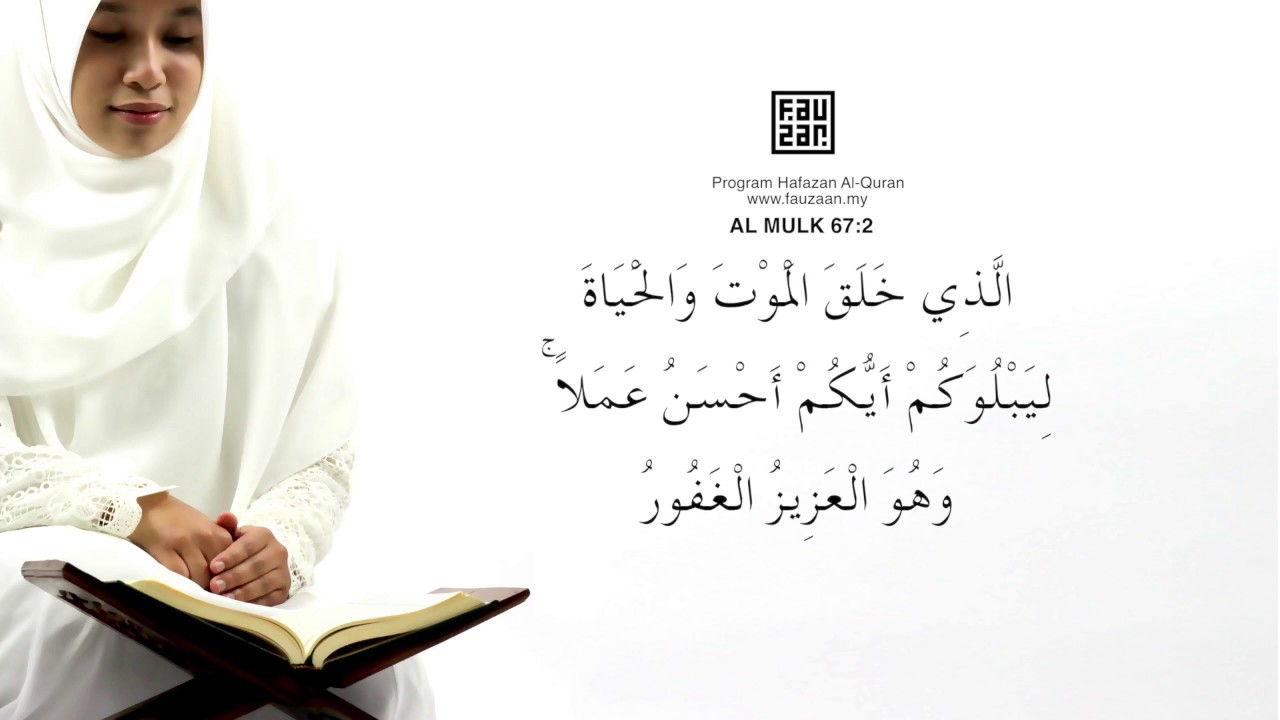 Fauzan
Program Hafazan Al-Quran
www.fauzaan.my
AL MULK 67:2
الَّذِي خَلَقَ الْمَوْتَ وَالْحَيَاةَ
لِيَبْلُوَكُمْ أَيُّكُمْ أَحْسَنُ عَمَلًا ۚ
وَهُوَ الْعَزِيزُ الْغَفُورُ